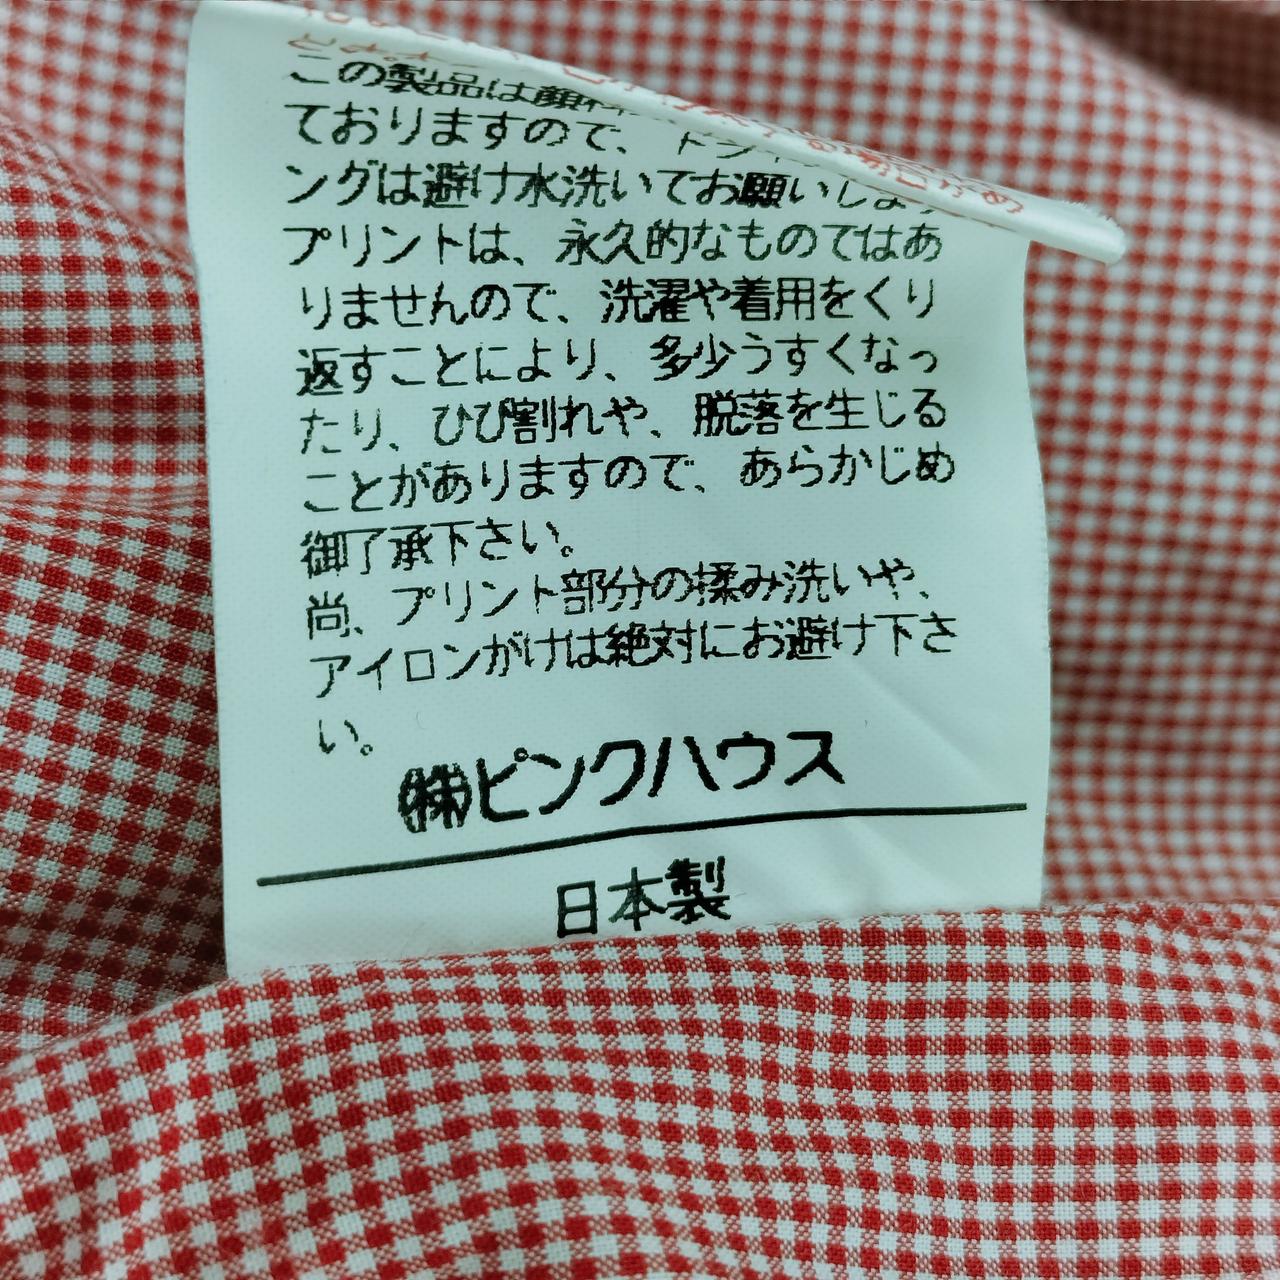 この製品は顔料
ておりますので、ドライ
ングは避け水洗いでお願いしま
プリントは、永久的なものではあ
りませんので、洗濯や着用をくり
返すことにより、多少うすくなっ
たり、ひび割れや、脱落を生じる
ことがありますので、あらかじめ
御了承下さい。
尚、プリント部分の揉み洗いや、
アイロンがけは絶対にお避け下さ
い。
㈱ピンクハウス
日本製